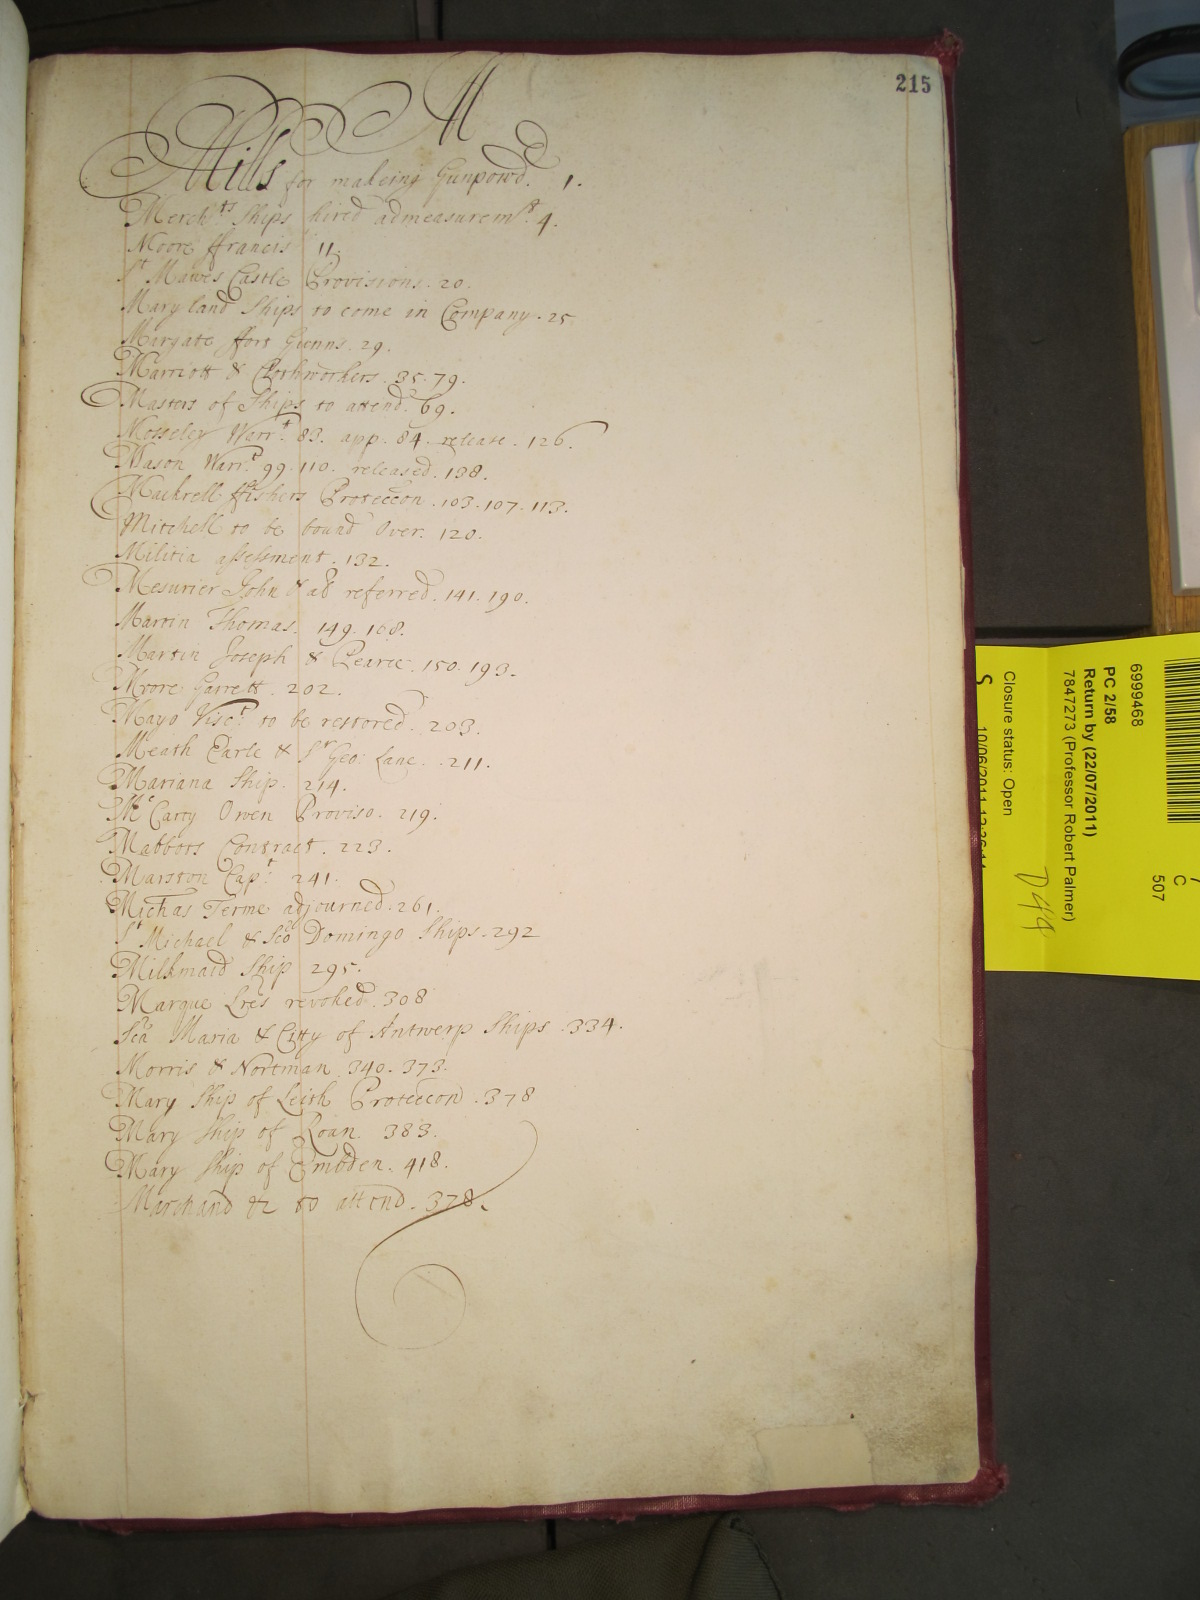 215
M
Mills for making Gunpowd. 1.
Merch.ts Ships hired admeasurem.t 4.
Moore ffrancis 11.
St Mawes Castle Provisions. 20.
Maryland Ships to come in Company. 25
Margate ffort Gunns. 29.
Marriott & Clothworkers. 35. 79.
Masters of Ships to attend. 69.
Mosseley Warr.t 83. app. 84. release. 126.
Mason Warr.t 99. 110. released. 138.
Mackrell ffishers Proteccon. 103. 107. 113.
Mitchell to be bound Over. 120.
Militia assessment. 132.
Mesurier John & al referred. 141. 190.
Martin Thomas. 149. 168.
Martin Joseph & Pearce. 150. 193.
Moore Garrett. 202.
Mayo Visc.t to be restored. 203.
Meath Earle & Sr Geo: Lane. 211.
Mariana Ship. 214.
Mc Carty Owen Proviso. 219.
Mabbots Contract. 223.
Marston Cap.t 241.
Michas Terme adjourned. 261.
St Michael & Sco Domingo Ships. 292
Milkmaid Ship 295.
Marque Lres revoked. 308
Sca Maria & Citty of Antwerp Ships. 334.
Morris & Nortman 340. 373.
Mary Ship of Leith Proteccon. 378
Mary Ship of Roan. 383.
Mary Ship of Embden. 418.
Marchand &c to attend. 378.
6999468
PC 2/58
Return by (22/07/2011)
7847273 (Professor Robert Palmer)
Closure status: Open
S
C
507
D44